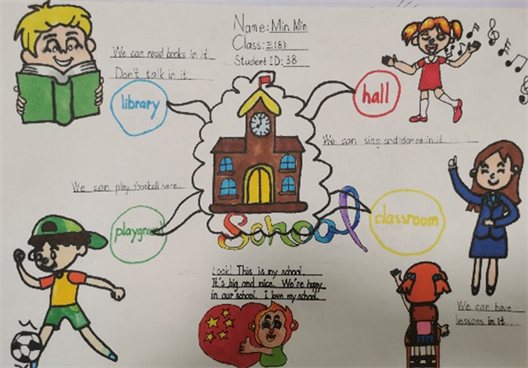 Name: Min Min
Class: 三(8)
Student ID: 38
We can read books in it.
Don't talk in it.
library
hall
We can sing and dance in it.
We can play football here.
playground
classroom
School
Look! This is my school.
It's big and nice. We're happy
in our school. I love my school.
We can have
lessons in it